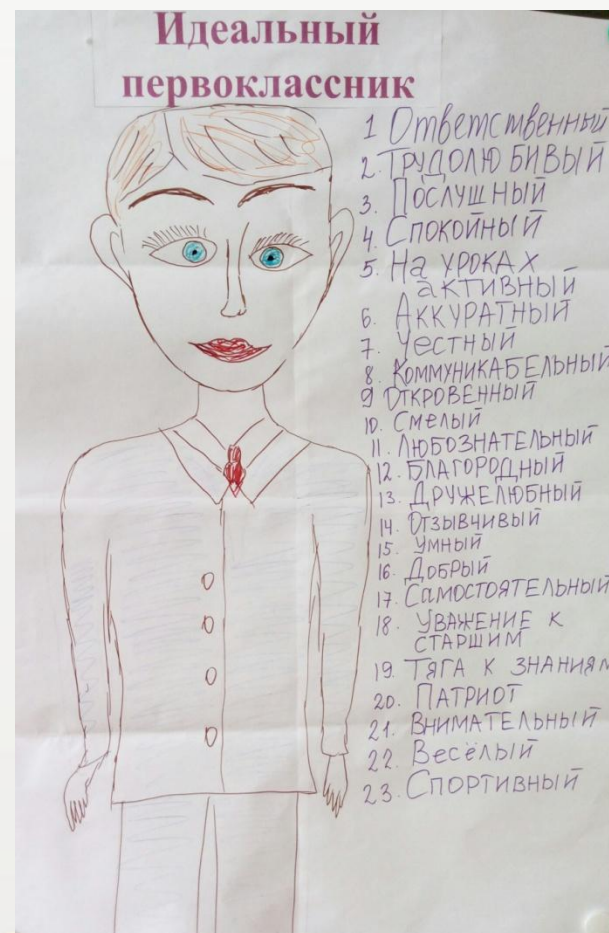 Идеальный
первоклассник
1 Ответственный
2. ТРУДОЛЮБИВЫЙ
3. ПОСЛУШНЫЙ
4. СПОКОЙНЫЙ
5. На УРОКАХ
аКТИВНЫЙ
6. АККУРАТНЫЙ
7. Честный
8. КОММУНИКАБЕЛЬНЫЙ
9 ОТКРОВЕННЫЙ
10. Смелый
11. ЛЮБОЗНАТЕЛЬНЫЙ
12. БЛАГОРОДНЫЙ
13. ДРУЖЕЛЮБНЫЙ
14. Отзывчивый
15. Умный
16. Добрый
17. Самостоятельный
18. УВАЖЕНИЕ К
СТАРШИМ
19. ТЯГА К ЗНАНИЯМ
20. ПАТРИОТ
21. ВНИМАТЕЛЬНЫЙ
22. Весёлый
23. СПОРТИВНЫЙ